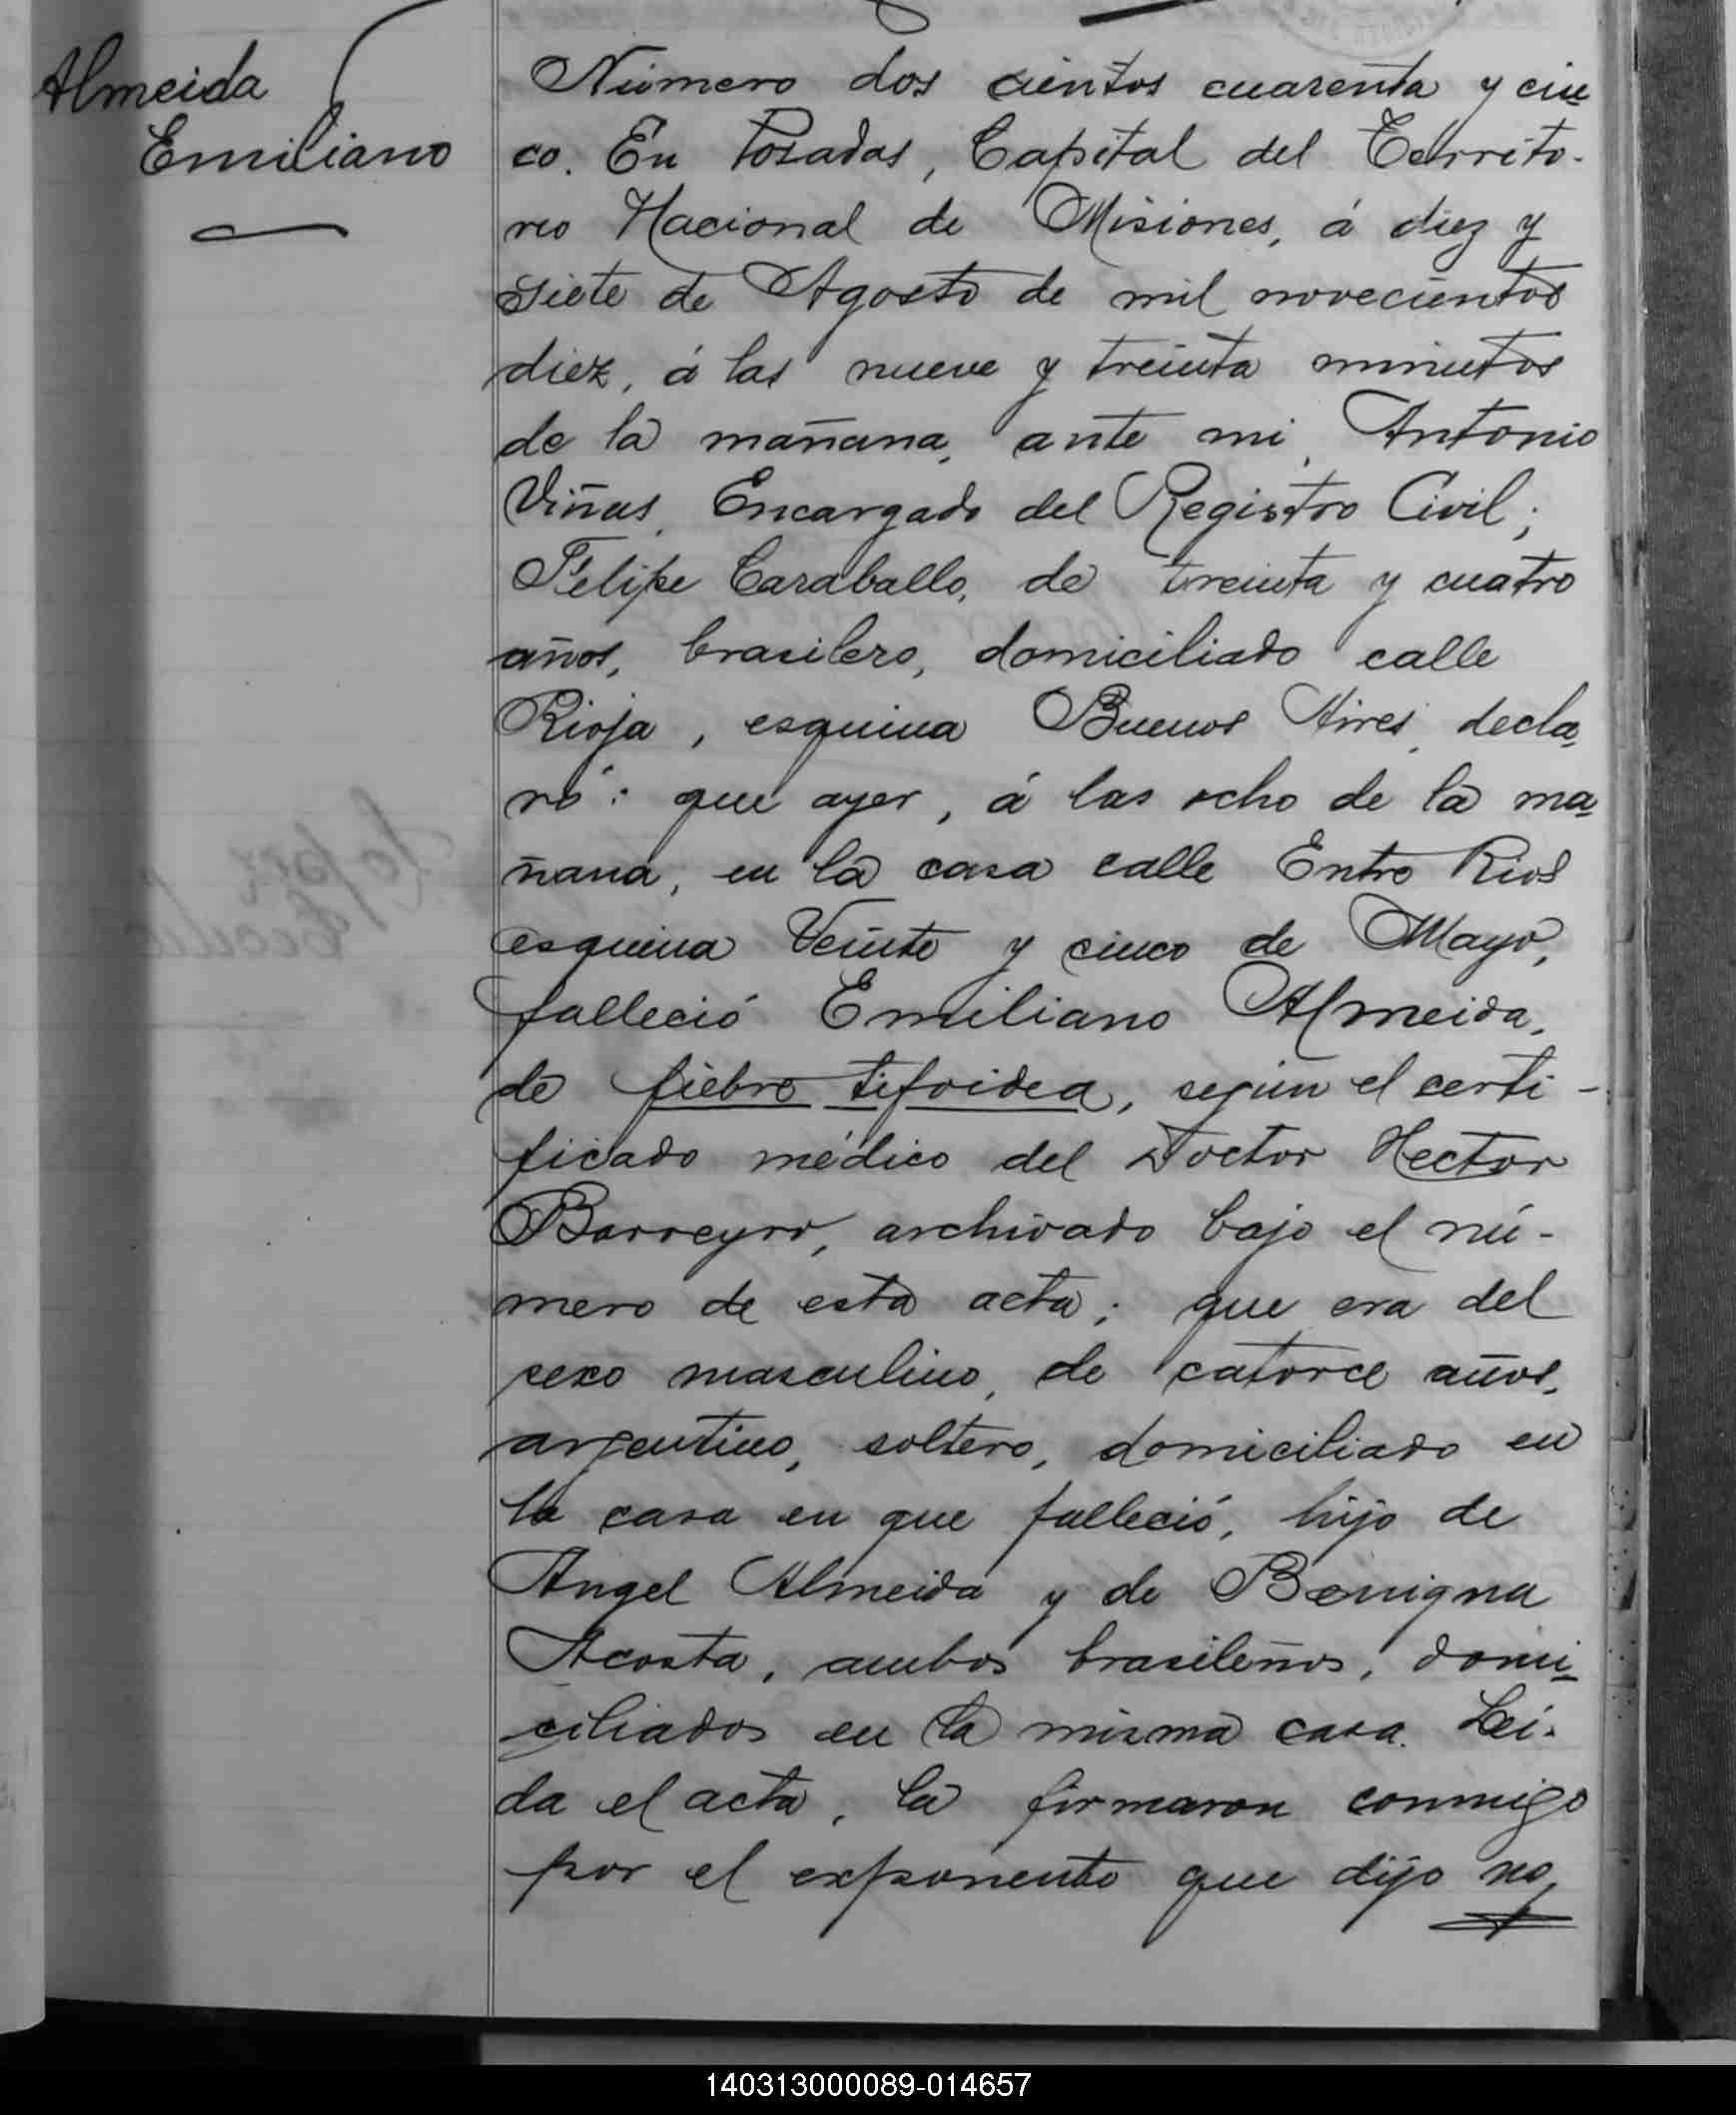 Almeida
Emiliano
Número dos cientos cuarenta y cin
co. En Posadas, Capital del Territo-
rio Nacional de Misiones, á diez y
siete de Agosto de mil novecientos
diez, á las nueve y treinta minutos
de la mañana, ante mi, Antonio
Viñas, Encargado del Registro Civil;
Felipe Caraballo, de treinta y cuatro
años, brasilero, domiciliado calle
Rioja, esquina Buenos Aires, decla
ró: que ayer, á las ocho de la ma
ñana, en la casa calle Entre Rios
esquina Veinte y cinco de Mayo,
falleció Emiliano Almeida,
de fiebre tifoidea, según el certi-
ficado médico del Doctor Hector
Barreyro, archivado bajo el nú-
mero de esta acta; que era del
sexo masculino, de catorce años,
argentino, soltero, domiciliado en
la casa en que falleció, hijo de
Angel Almeida y de Benigna
Acosta, ambos brasileños, domi
ciliados en la misma casa. Lei-
da el acta, la firmaron conmigo
por el exponente que dijo no
140313000089-014657